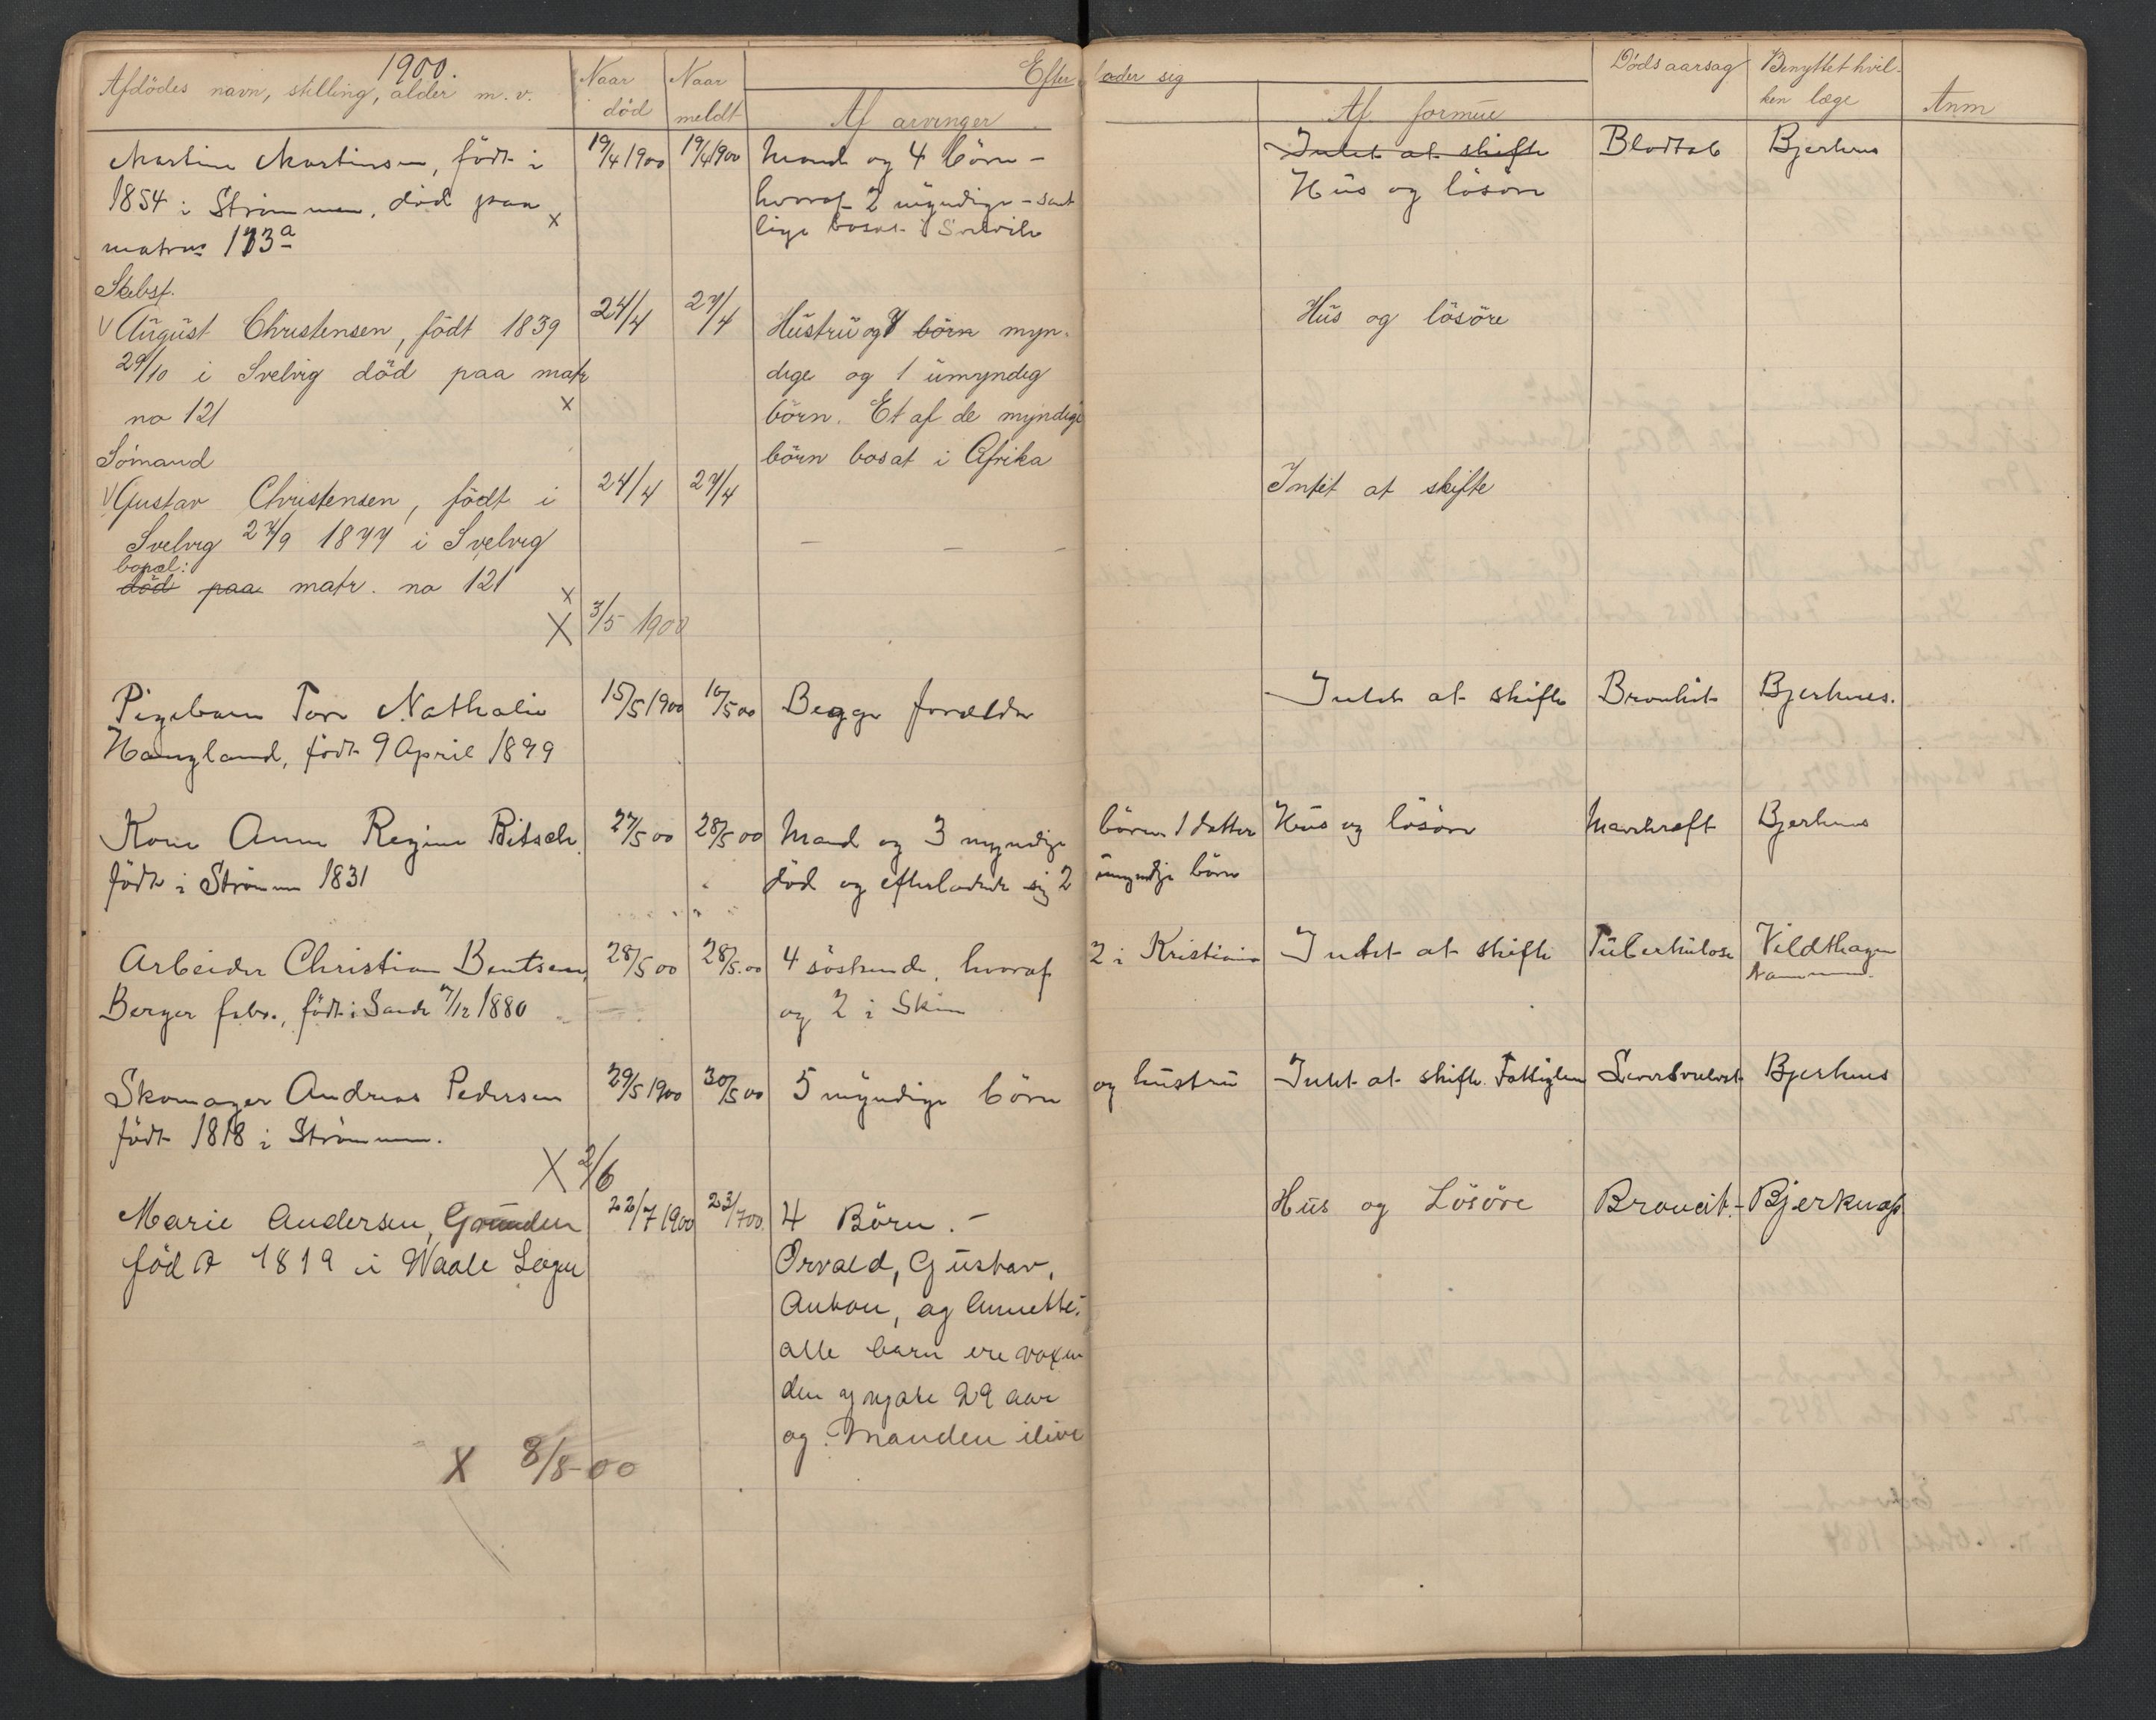 1900.
Afdödes navn, stilling, alder m. v.
Naar död
Naar meldt
Efterlader sig
Af arvinger
Af formue
Dödsaarsag
Benyttet hvilken læge
Anm
Martine Martinsen, födt i
1854 i Strömmen, död paa
matrno 113a
19/4 1900
19/4 1900
Mand og 4 börn -
hvoraf 2 myndige - samt
lige bosat i Svelvik
Intet at skifte
Hus og lösöre
Blodtab
Bjerknes
Skbsf.
August Christensen, födt 1839
29/10 i Svelvig död paa matr
no 121
24/4
27/4
Hustru og 7 börn myn-
dige og 1 umyndig
börn. Et af de myndige
börn bosat i Afrika
Hus og lösöre
Sömand
Gustav Christensen, födt i
Svelvig 27/9 1877 i Svelvig
bopæl:
död paa matr. no 121
24/4
27/4
— — —
Intet at skifte
X 3/5 1900
Pigebarn Tora Nathalie
Haugland, födt 9 April 1899
15/5 1900
16/5 00
Begge forældre
Intet at skifte
Bronkit
Bjerknes.
Kone Anne Regine Bitsch
födt i Strömm 1831
27/5 00
28/5 00
Mand og 3 myndige börn 1 datter
död og efterladende sig 2 umyndige börn
Hus og lösöre
Marikraft
Bjerknes
Arbeider Christian Bentsen,
Berger fabr., födt i Sande 7/12 1880
28/5 00
28/5.00
4 söskende, hvoraf 2 i Kristiania
og 2 i Skien
Intet at skifte
Tuberkulose
Vildthagen
Skomager Andreas Pedersen
födt 1818 i Strömmen.
29/5 1900
30/5 00
5 myndige börn og hustru
Intet at skifte. Fattiglem
Bjerknes
X 2/6
Marie Andersen, Grunden
född 1819 i Waale Sogn
22/7 1900
23/7 00.
4 Börn. -
Orvald, Gustav,
Anton, og Annette.
alle barn ere voxen
den yngste 29 aar
og Manden ilive
Hus og Lösöre
Broncit. -
Bjerknæs
X 8/8-00